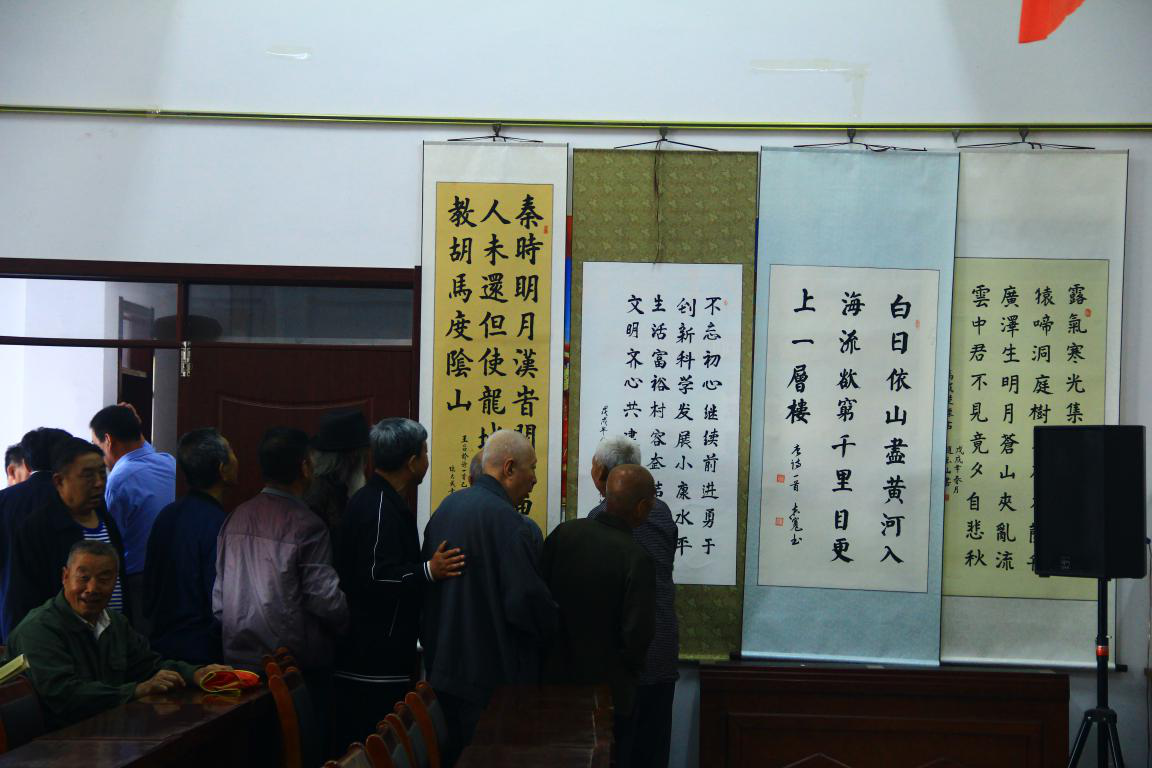 秦時明月漢旹關
人未還但使龍城
教胡馬度陰山
不忘初心继续前进勇于
创新科学发展小康水平
生活富裕村容整洁
文明齐心共建
戊戌年
白日依山盡黄河入
海流欲窮千里目更
上一層樓
唐诗一首
露氣寒光集
猿啼洞庭樹
廣澤生明月蒼山夾亂流
雲中君不見竟夕自悲秋
戊戌年春月